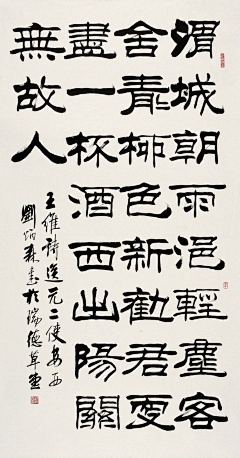 渭城朝雨浥輕塵客
舍青柳色新勸君更
盡一杯酒西出陽關
無故人
王維詩送元二使安西
劉炳森書於瑞德草堂